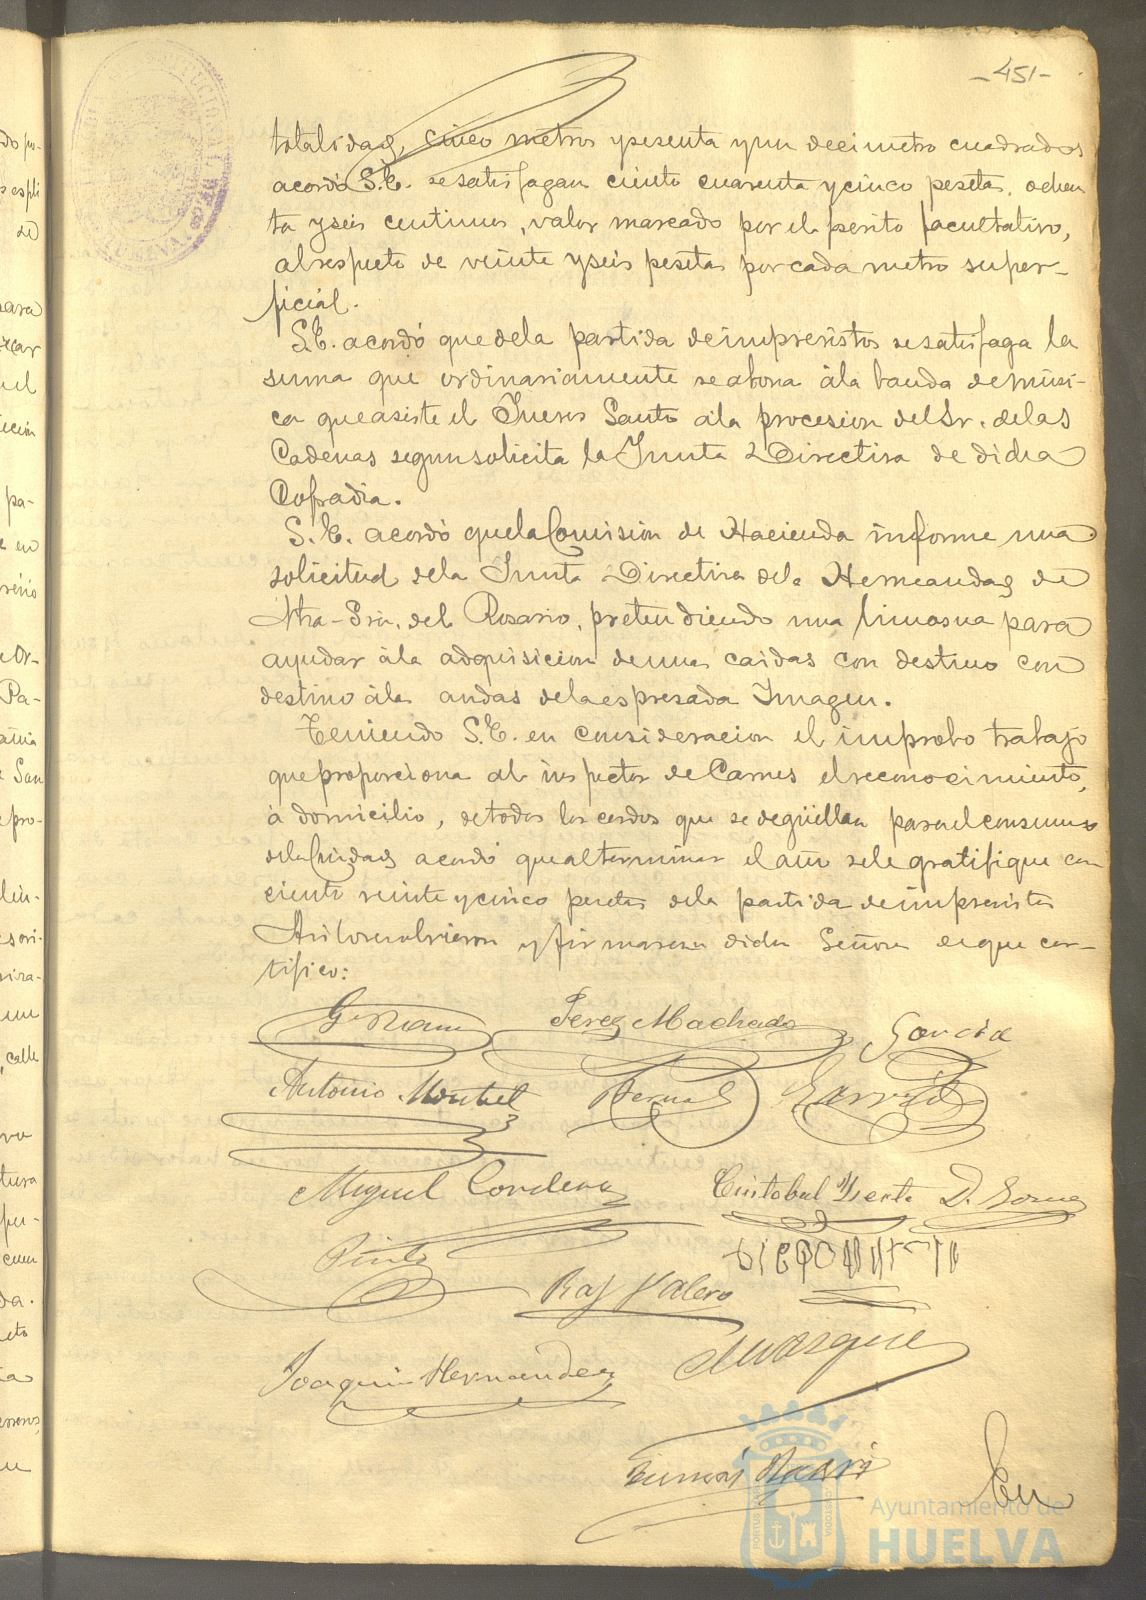 -451-
totalidad, cinco metros y sesenta y un decimetro cuadrados
acordó S.E. se satisfagan ciento cuarenta y cinco pesetas ochen
ta y seis centimos, valor marcado por el perito facultativo,
al respecto de veinte y seis pesetas por cada metro super-
ficial.
S.E. acordó que de la partida de imprevistos se satisfaga la
suma que ordinariamente se abona á la banda de músi-
ca que asiste el Jueves Santo á la procesion del Sr. de las
Cadenas segun solicita la Junta Directiva de dicha
Cofradia.
S.E. acordó que la Comision de Hacienda informe una
solicitud de la Junta Directiva de la Hermandad de
Ntra Sra. del Rosario, pretendiendo una limosna para
ayudar á la adquisicion de unas caidas con destino con
destino á las andas de la espresada Imagen.
Teniendo S.E. en consideracion el improbo trabajo
que proporciona al inspector de Carnes el reconocimiento,
á domicilio, de todos los cerdos que se degüellan para el consumo
de la Ciudad acordó que al terminar el año se le gratifique con
ciento veinte y cinco pesetas de la partida de imprevistos
Asi lo resolvieron y firmaron dichos Señores de que cer-
tifico:
Perez Machado
Garcia
Antonio
Bernal
Garrido
Miguel Cordero
Cristobal
D.
Pinto
Raf Valero
Joaquin Hernandez
Marquez
En
Ayuntamiento de
HUELVA